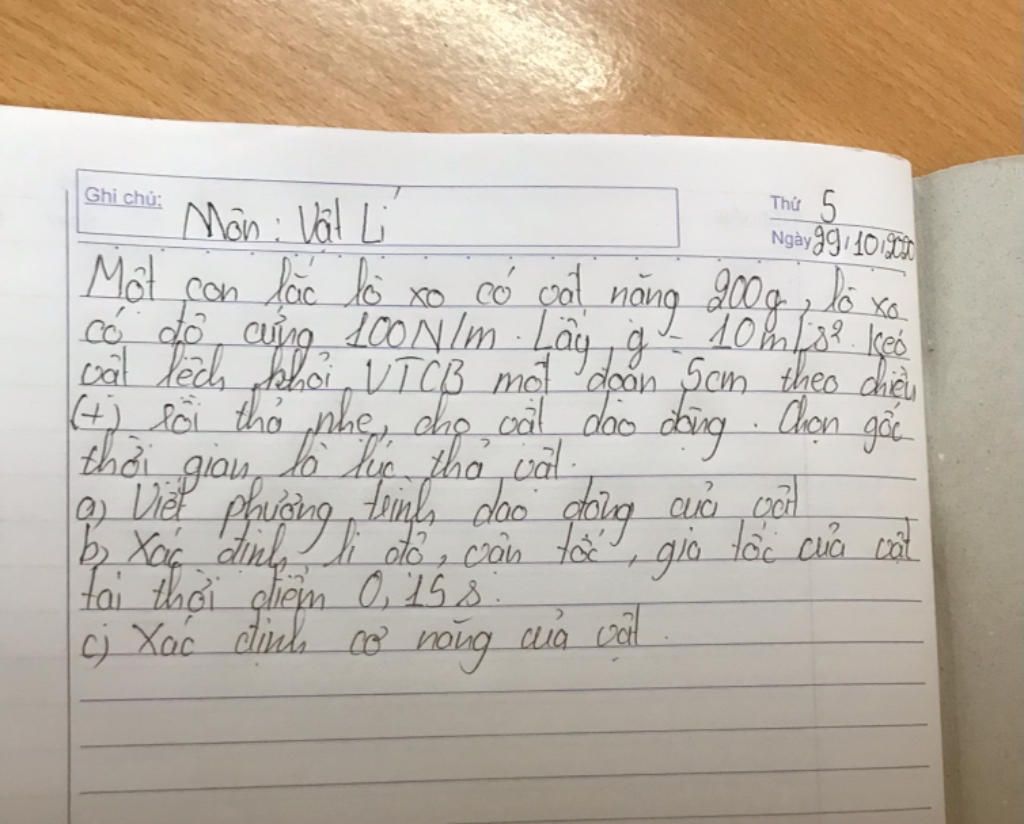 Ghi chú: Môn: Vật Lí
Thứ 5
Ngày 29/10/2020
Một con lắc lò xo có vật nặng 200g, lò xo
có độ cứng 100N/m. Lấy g = 10m/s². Kéo
vật lệch khỏi VTCB một đoạn 5cm theo chiều
(+) rồi thả nhẹ, cho vật dao động. Chọn gốc
thời gian là lúc thả vật.
a) Viết phương trình dao động của vật
b) Xác định li độ, vận tốc, gia tốc của vật
tại thời điểm 0,15s.
c) Xác định cơ năng của vật.